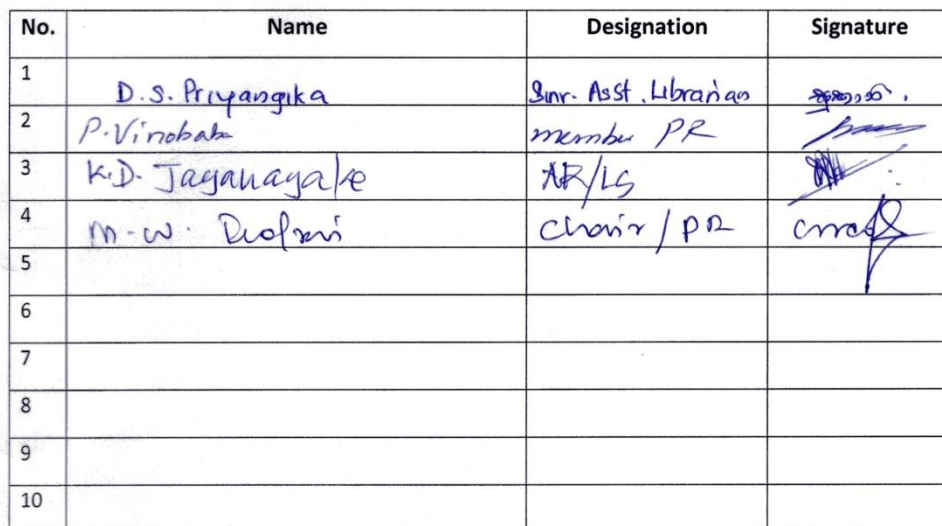 No. Name Designation Signature
1 D.S. Priyangika Snr. Asst. Librarian
2 P. Vinobaba member PR
3 K.D. Jayanayake AR/LS
4 M.W. Chair / PR
5
6
7
8
9
10